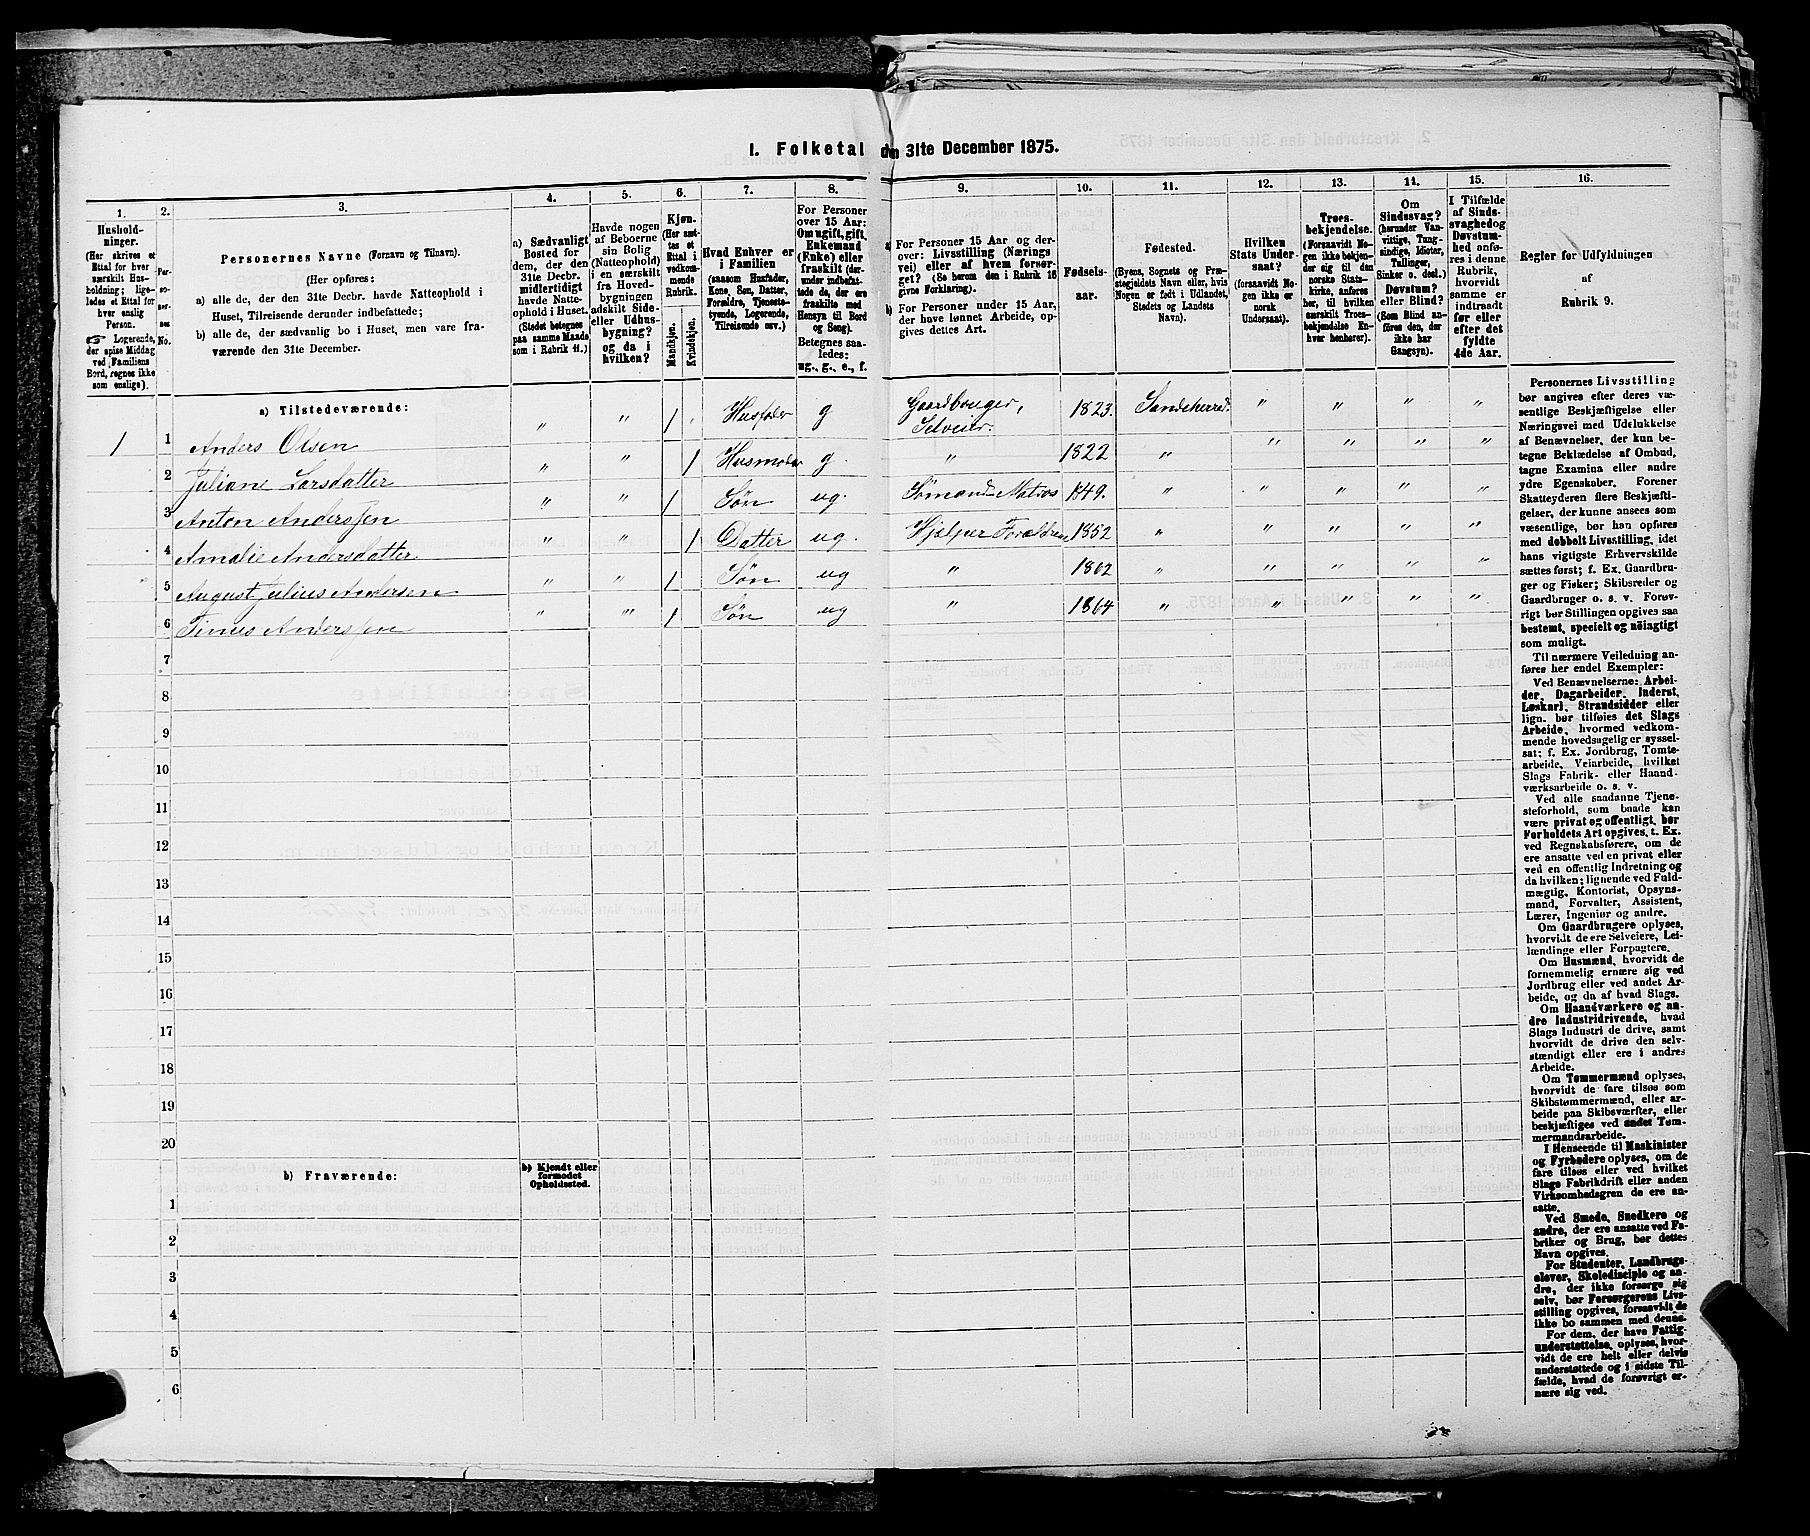 I. Folketal den 31te December 1875.
1.
2.
3.
4.
5.
6.
7.
8.
9.
10.
11.
12.
13.
14.
15.
16.
Hushold-
ninger.
(Her skrives et
Ettal for hver
særskilt Hus-
holdning; lige-
ledes et Ettal for
hver enslig
Person.
☞ Logerende,
der spise Middag
ved Familiens
Bord, regnes ikke
som enslige).
Per-
so-
ner-
nes
No.
Personernes Navne (Fornavn og Tilnavn).
(Her opføres:
a) alle de, der den 31te Decbr. havde Natteophold i
Huset, Tilreisende derunder indbefattede;
b) alle de, der sædvanlig bo i Huset, men vare fra-
værende den 31te December.
a) Sædvanligt
Bosted for
dem, der den
31te Decbr.
midlertidigt
havde Natte-
ophold i Huset.
(Stedet betegnes
paa samme Maade
som i Rubrik 11.)
Havde nogen
af Beboerne
sin Bolig
(Natteophold)
i en særskilt
fra Hoved-
bygningen
adskilt Side-
eller Udhus-
bygning?
og da i
hvilken?
Kjøn.
(Her sæt-
tes et
Ettal i
vedkom-
mende
Rubrik.
Mandkjøn.
Kvindekjøn.
Hvad Enhver er
i Familien
(saasom Husfader,
Kone, Søn, Datter,
Forældre, Tjeneste-
tyende, Logerende,
Tilreisende osv.)
For Personer
over 15 Aar:
Om ugift, gift,
Enkemand
(Enke) eller
fraskilt (der-
under indbefat-
tede de, der ere
fraskilte med
Hensyn til Bord
og Seng).
Betegnes saa-
ledes:
ug., g., e., f.
a) For Personer 15 Aar og der-
over: Livsstilling (Nærings-
vei) eller af hvem forsør-
get? (Se herom den i Rubrik 16
givne Forklaring).
b) For Personer under 15 Aar,
der have lønnet Arbeide, op-
gives dettes Art.
Fødsels-
aar.
Fødested.
(Byens, Sognets og Præ-
stegjeldets Navn eller, hvis
Nogen er født i Udlandet,
Stedets og Landets
Navn).
Hvilken
Stats Under-
saat?
(forsaavidt No-
gen ikke er
norsk
Undersaat).
Troes-
bekjendelse.
(Forsaavidt No-
gen ikke bekjen-
der sig til den
norske Stats-
kirke, anføres
her, til hvilken
særskilt Troes-
bekjendelse En-
hver henhører).
Om
Sindssvag?
(herunder Van-
vittige, Tung-
sindige, Idioter,
Tullinger,
Sinker o. desl.)
Døvstum?
eller Blind?
(Som Blind an-
føres den, der
ikke har
Gangsyn).
I Tilfælde
af Sinds-
svaghed og
Døvstum-
hed anfø-
res i denne
Rubrik,
hvorvidt
samme er
indtraadt
før eller
efter det
fyldte
4de Aar.
Regler for Udfyldningen
af
Rubrik 9.
a) Tilstedeværende:
1 1 Anders Olsen " " 1 . Husfader g Gaardbruger, Selveier. 1823. Sandeherred. " " " "
2 Juliane Larsdatter " " 1 Husmoder g. " 1822 " " " " "
3 Anton Anderssen " " 1 Søn ug. Sømand Matros 1849. " " " " "
4 Amalie Andersdatter " " 1 Datter ug. Hjelper Forældrene 1852 " " " " "
5 August Julius Andersen " " 1 Søn ug " 1862 " " " " "
6 Anderssen " " 1 Søn ug " 1864 " " " " "
7
8
9
10
11
12
13
14
15
16
17
18
19
20
b) Fraværende:
b) Kjendt eller
formodet
Opholdssted.
1
2
3
4
5
6
Personernes Livsstilling
bør angives efter deres væ-
sentlige Beskjæftigelse eller
Næringsvei med Udelukkelse
af Benævnelser, der kun be-
tegne Beklædelse af Ombud,
tagne Examina eller andre
ydre Egenskaber. Forener
Skatteyderen flere Beskjæfti-
gelser, der kunne ansees som
væsentlige, bør han opføres
med dobbelt Livsstilling, idet
hans vigtigste Erhvervskilde
sættes først; f. Ex. Gaardbru-
ger og Fisker; Skibsreder og
Gaardbruger o. s. v. Forøv-
rigt bør Stillingen opgives saa
bestemt, specielt og nøiagtigt
som muligt.
Til nærmere Veiledning an-
føres her endel Exempler:
Ved Benævnelserne: Arbei-
der, Dagarbeider, Inderst,
Løskarl, Strandsidder eller
lign. bør tilføies det Slags
Arbeide, hvormed vedkom-
mende hovedsagelig er syssel-
sat; f. Ex. Jordbrug, Tomte-
arbeide, Veiarbeide, hvilket
Slags Fabrik- eller Haand-
værksarbeide o. s. v.
Ved alle saadanne Tjene-
steforhold, som baade kan
være privat og offentligt, bør
Forholdets Art opgives, t. Ex.
ved Regnskabsførere, om de
ere ansatte ved en privat eller
ved en offentlig Indretning og
da hvilken; lignende ved Fuld-
mægtig, Kontorist, Opsyns-
mand, Forvalter, Assistent,
Lærer, Ingeniør og andre.
Om Gaardbrugere oplyses,
hvorvidt de ere Selveiere, Lei-
lændinge eller Forpagtere.
Om Husmænd, hvorvidt de
fornemmelig ernære sig ved
Jordbrug eller ved andet Ar-
beide, og da af hvad Slags.
Om Haandværkere og an-
dre Industridrivende, hvad
Slags Industri de drive, samt
hvorvidt de drive den selv-
stændigt eller ere i andres
Arbeide.
Om Tømmermænd oplyses,
hvorvidt de fare tilsøs som
Skibstømmermænd, eller ar-
beide paa Skibsværfter, eller
beskjæftiges ved andet Tøm-
mermandsarbeide.
I Henseende til Maskinister
og Fyrbødere oplyses, om de
fare tilsøs eller ved hvilket
Slags Fabrikdrift eller anden
Virksomhedsgren de ere an-
satte.
Ved Smede, Snedkere og
andre, der ere ansatte ved Fa-
briker og Brug, bør dettes
Navn opgives.
For Studenter, Landbrugs-
elever, Skoledisciple og an-
dre, der ikke forsørge sig
selv, bør Forsørgerens Livs-
stilling opgives, forsaavidt de
ikke bo sammen med denne.
For dem, der have Fattig-
understøttelse, oplyses, hvor-
vidt de ere helt eller delvis
understøttede og i sidste Til-
fælde, hvad de forøvrigt er-
nære sig ved.